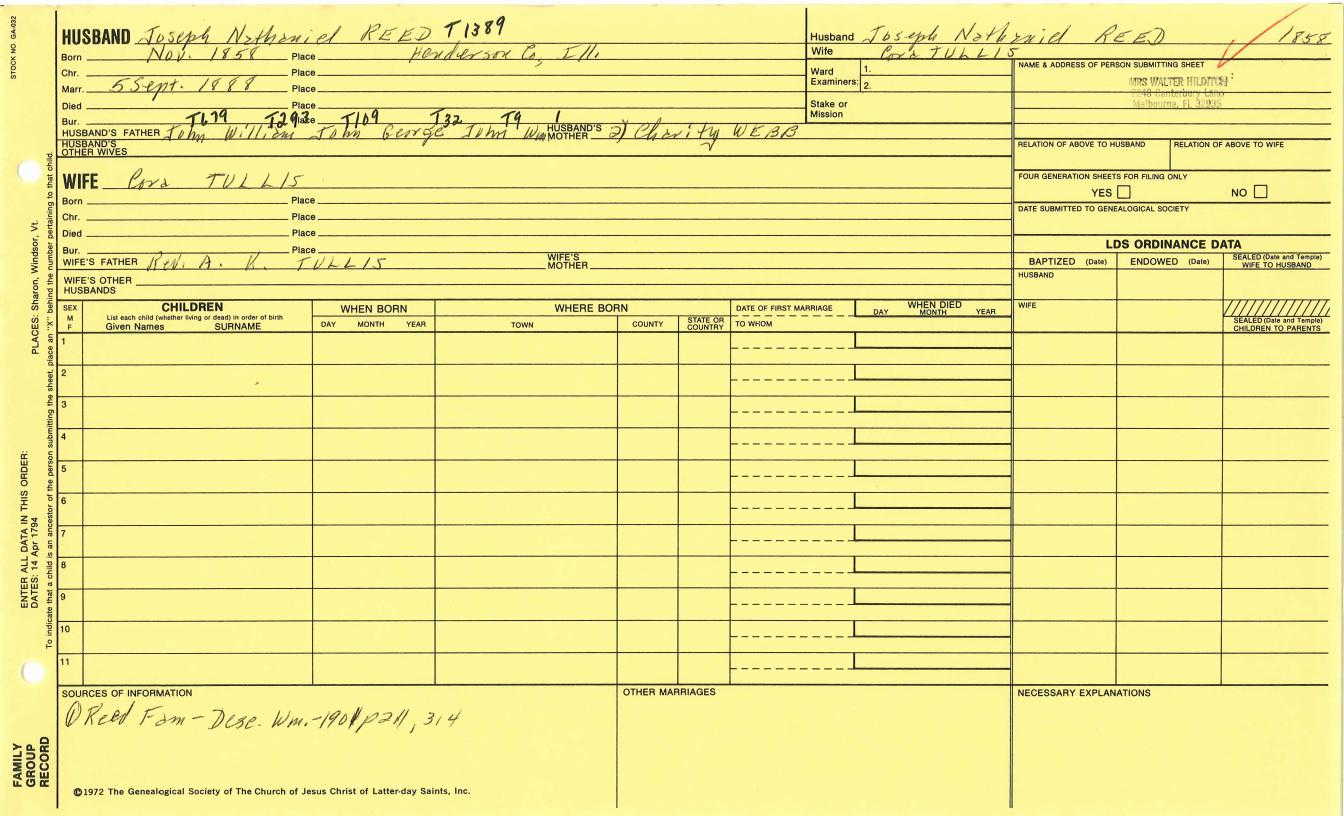 STOCK NO. GA-032
HUSBAND Joseph Nathaniel REED T1389
Born Nov. 1858 Place Henderson Co, Ill.
Chr. Place
Marr. 5 Sept. 1888 Place
Died Place
Bur. Place
T679 T293 T109 T32 T9 1
HUSBAND'S FATHER John William John George John Wm HUSBAND'S MOTHER 2) Charity WEBB
HUSBAND'S OTHER WIVES
Husband Joseph Nathaniel REED 1858
Wife Cora TULLIS
Ward Examiners: 1.
2.
Stake or Mission
NAME & ADDRESS OF PERSON SUBMITTING SHEET
MRS WALTER HILDITCH
Canterbury Lane
Melbourne, FL 32935
RELATION OF ABOVE TO HUSBAND RELATION OF ABOVE TO WIFE
FOUR GENERATION SHEETS FOR FILING ONLY
YES NO
DATE SUBMITTED TO GENEALOGICAL SOCIETY
WIFE Cora TULLIS
Born Place
Chr. Place
Died Place
Bur. Place
WIFE'S FATHER Rev. A. K. TULLIS WIFE'S MOTHER
WIFE'S OTHER HUSBANDS
LDS ORDINANCE DATA
BAPTIZED (Date) ENDOWED (Date) SEALED (Date and Temple) WIFE TO HUSBAND
HUSBAND
WIFE
SEALED (Date and Temple) CHILDREN TO PARENTS
SEX M F
CHILDREN
List each child (whether living or dead) in order of birth
Given Names SURNAME
WHEN BORN
DAY MONTH YEAR
WHERE BORN
TOWN COUNTY STATE OR COUNTRY
DATE OF FIRST MARRIAGE
TO WHOM
WHEN DIED
DAY MONTH YEAR
1
2
3
4
5
6
7
8
9
10
11
SOURCES OF INFORMATION
① Reed Fam - Desc. Wm.-1901 p211, 314
OTHER MARRIAGES
NECESSARY EXPLANATIONS
©1972 The Genealogical Society of The Church of Jesus Christ of Latter-day Saints, Inc.
FAMILY GROUP RECORD
ENTER ALL DATA IN THIS ORDER:
DATES: 14 Apr 1794 PLACES: Sharon, Windsor, Vt.
To indicate that a child is an ancestor of the person submitting the sheet, place an "X" behind the number pertaining to that child.